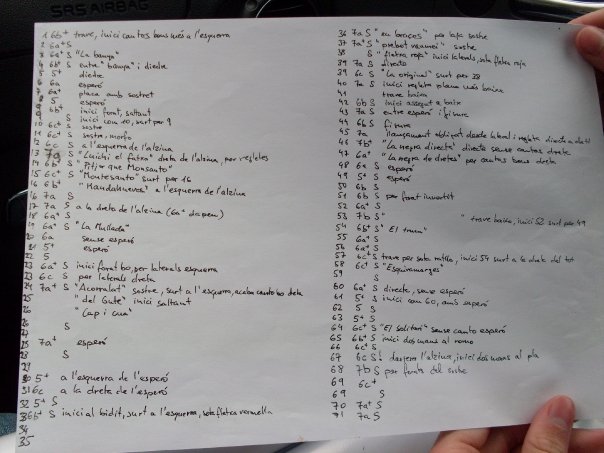 SRS AIRBAG
1 6b+ trave, inici cantos bons més a l'esquerra
2 6a+ S
3 6a+ S "La banya"
4 6b+ S entre "banya" i diedre
5 5+ diedre
6 6a esperó
7 6a+ placa amb sostret
8 5 esperó
9 6b+ inici forat, saltant
S inici com 10, surt per 9
10 6c+ S sostre
11 6c+ S sostre, morfo
12 6c S a l'esquerra de l'alzina
13 7a S "Luichi el futxa" dreta de l'alzina, per regletes
14 6b+ S "Pitjor que Monsanto"
15 6c+ S "Montesanto" surt per 16
16 6b+ "Mandahuevos" a l'esquerra de l'alzina
16 7a S
17 7a S a la dreta de l'alzina (6a+ dapeu)
18 6a+ S
19 6a+ S "La Mullada"
20 6a sense esperó
21 5+ esperó
22 5
23 6a S inici forat bo, per laterals esquerra
23 6c S per laterals dreta
24 7a+ S "Acorralat" sostre, surt a l'esquerra, acaba canto bo dreta
25 "del Guté" inici saltant
26 "Cap i cua"
S
7a+ esperó
S
30 5+ a l'esquerra de l'esperó
31 6c a la dreta de l'esperó
32 5+ S
33 6b+ S inici al bidit, surt a l'esquerra, sota fletxa vermella
34
35
36 7a S "en braços" per baix sostre
37 7a+ S sostre
38 S "fletxa roja" inici laterals, sota fletxa roja
39 7a S directo
39 6c S "La original" surt per 38
40 7a S inici regleta plana més baixa
41 trave baixa
42 6b S inici assegut a baix
43 7a S entre esperó i fissura
44 6b S fissura
45 7a llançament obligat desde lateral i regleta directa a dalt
46 7b+ "La negra directa" directe sense cantos dreta
47 6a+ "La negra de dretes" per cantos bons dreta
48 6a S esperó
49 5+ S esperó
50 6b S
51 6b S per forat invertit
52 6a+ S
53 7b S " " trave baixa, inici 52 surt per 49
54 6b+ S "El tram"
55 6a+ S
56 6a+ S
57 6c+ S trave per sota ratlla, inici 54 surt a la dreta del tot
58 6c+ S "Esquinxanarges"
59 S
60 6a+ S directe, sense esperó
61 5+ S inici com 60, amb esperó
62 5 S
63 5+ S
64 6c+ S "El solitari" sense canto esperó
65 6b+ S inici dos mans al romo
66 6c+ S
67 6c S darrera l'alzina, inici dos mans al pla
68 7b S per fonda del sostre
69 6c+
69 S
70 7a+ S
71 7a S